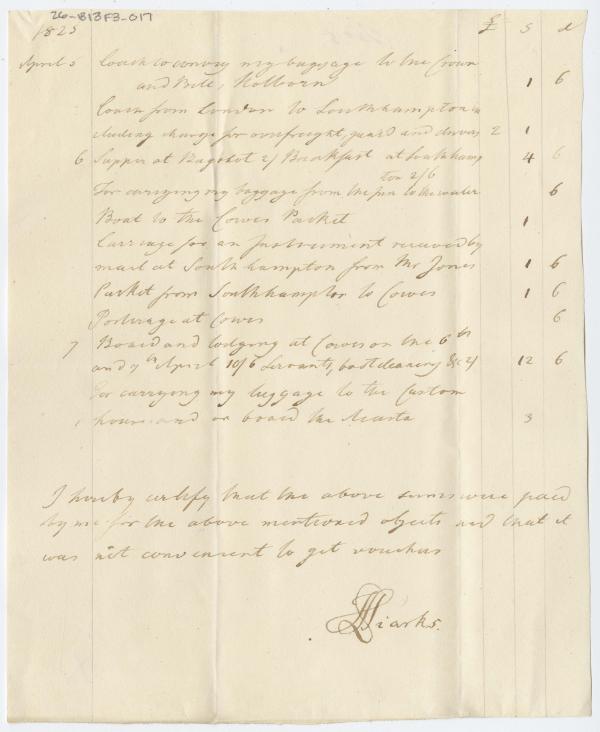 26-B13F3-017
1825 £ S d
April 5 Coach to convey my baggage to the Crown
and Bell, Holborn 1 6
Coach from London to Southhampton in
cluding charge for overfreight, guard and drivers 2 1
6 Supper at Bagshot 2/ Breakfast at Southhamp 4 6
ton 2/6
For carrying my baggage from the inn to the water 6
Boat to the Cowes Packet 1
Carriage for an Instrument received by
mail at Southhampton from Mr Jones 1 6
Packet from Southhampton to Cowes 1 6
Porterage at Cowes 6
7 Board and lodging at Cowes on the 6th
and 7th April 10/6 Servants, bootcleaning &c 2/ 12 6
For carrying my luggage to the Custom
house and on board the 3
I hereby certify that the above sums were paid
by me for the above mentioned objects and that it
was not convenient to get vouchers